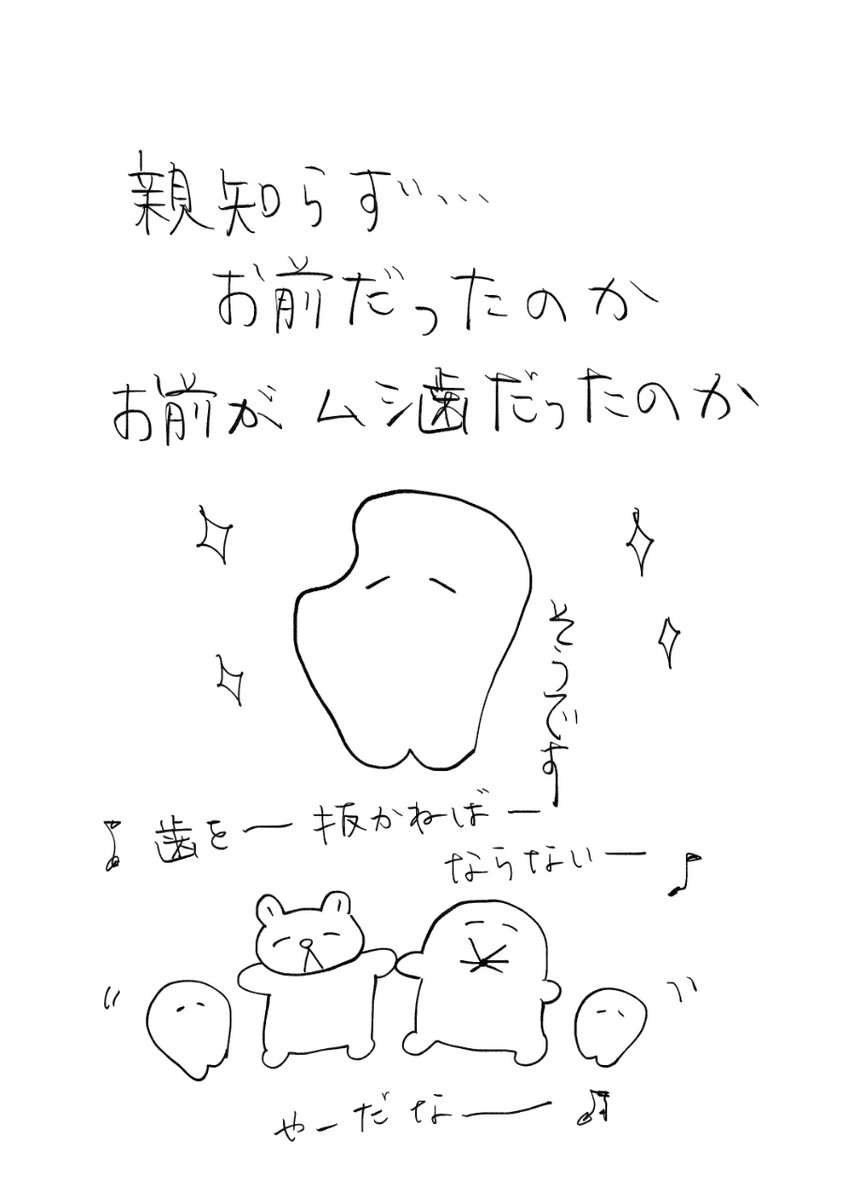 親知らず…
お前だったのか
お前がムシ歯だったのか
そうです
♪歯を〜抜かねばー
ならないー♪
やーだなー♫